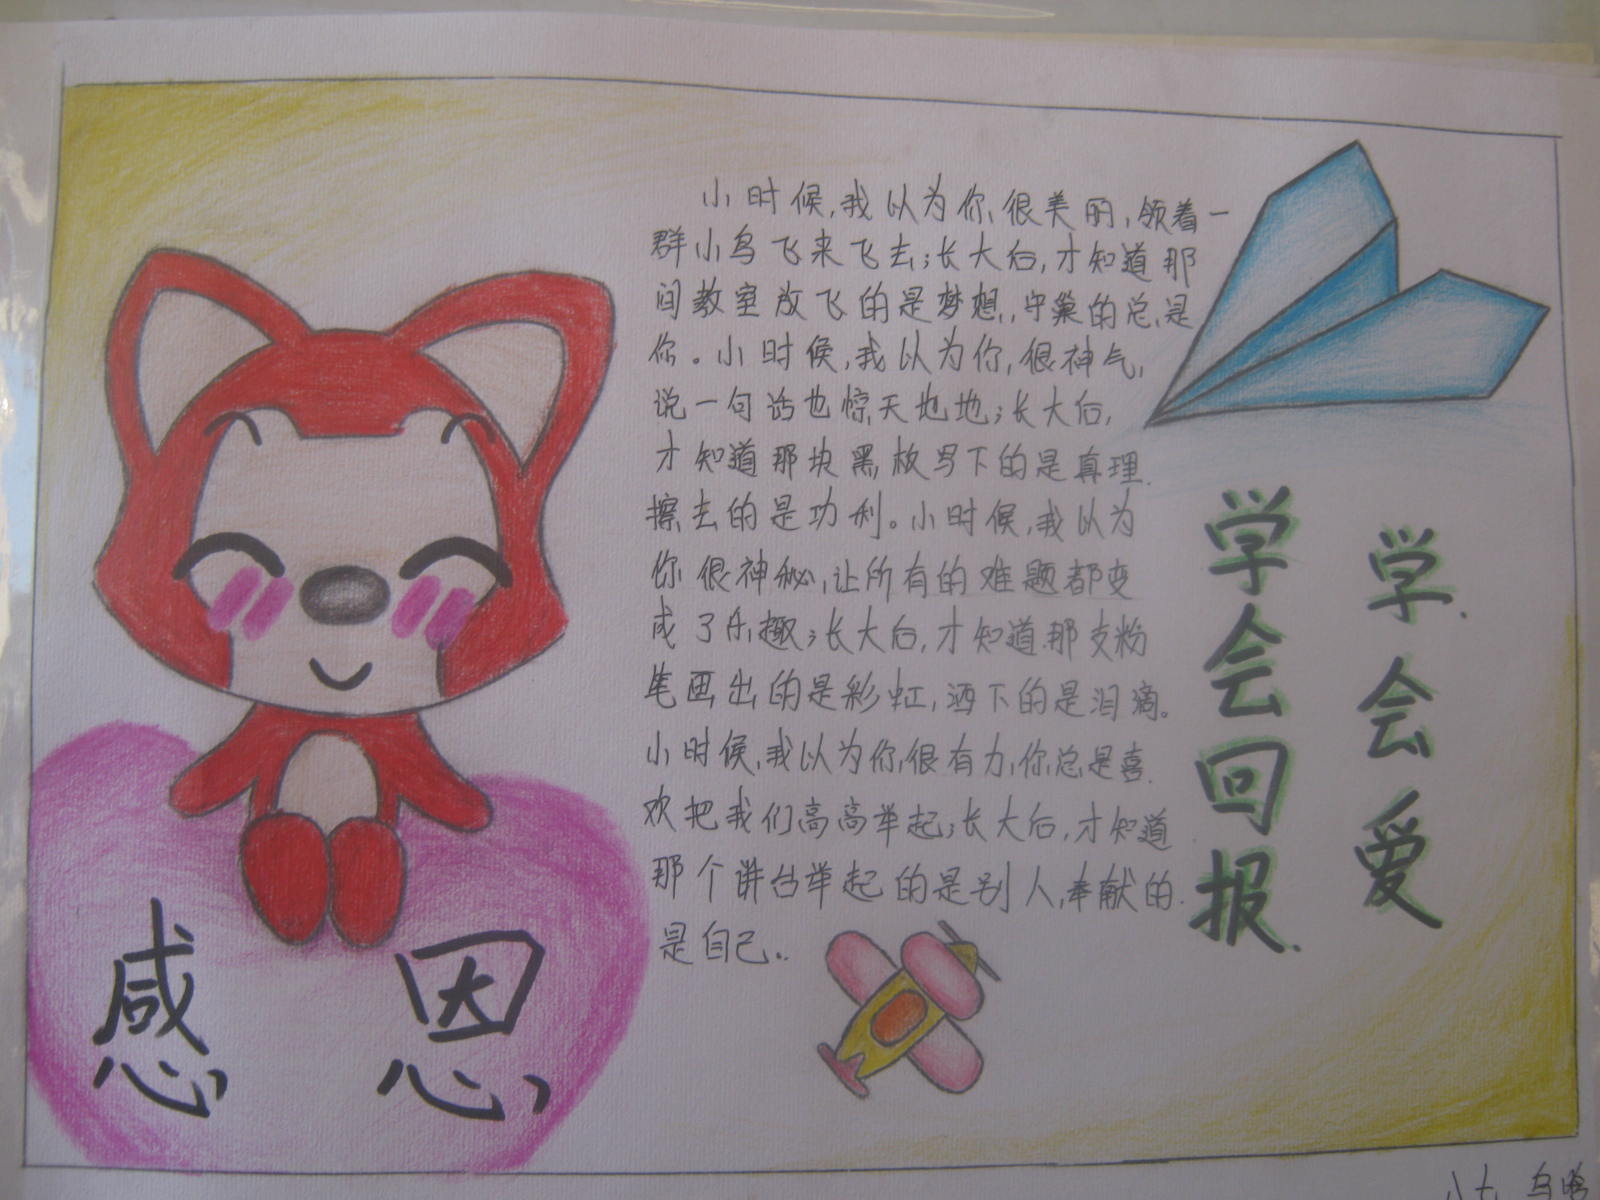 小时候,我以为你很美丽,领着一
群小鸟飞来飞去;长大后,才知道那
间教室放飞的是梦想,守巢的总是
你。小时候,我以为你很神气,
说一句话也惊天地地;长大后,
才知道那块黑板写下的是真理
擦去的是功利。小时候,我以为
你很神秘,让所有的难题都变
成了乐趣;长大后,才知道那支粉
笔画出的是彩虹,洒下的是泪滴。
小时候,我以为你很有力,你总是喜
欢把我们高高举起;长大后,才知道
那个讲台举起的是别人,奉献的
是自己。
学会爱
学会回报
感恩